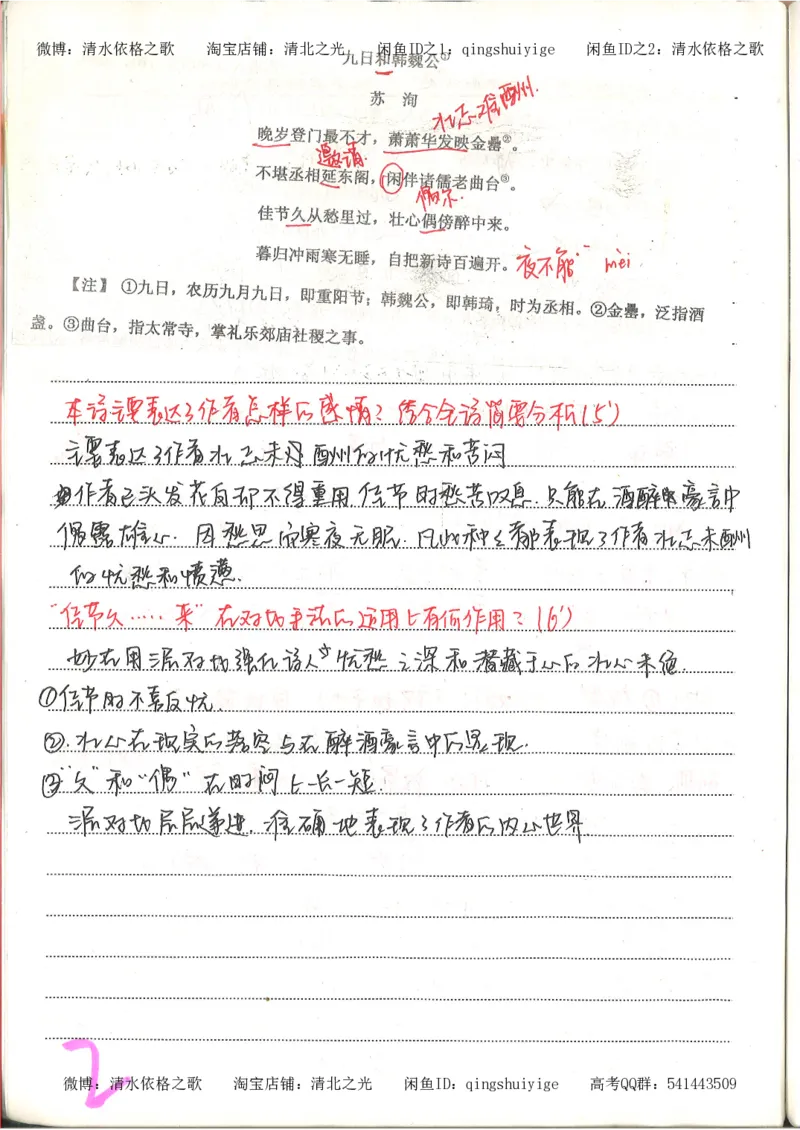 微博：清水依格之歌 淘宝店铺：清北之光 闲鱼ID之1：qingshuiyige 闲鱼ID之2：清水依格之歌
九日和韩魏公①
苏 洵
壮志难酬
晚岁登门最不才，萧萧华发映金罍②。
邀请
不堪丞相延东阁，闲伴诸儒老曲台③。
偶尔
佳节久从愁里过，壮心偶傍醉中来。
暮归冲雨寒无睡，自把新诗百遍开。 夜不能寐 mèi
【注】 ①九日，农历九月九日，即重阳节；韩魏公，即韩琦，时为丞相。②金罍，泛指酒
盏。③曲台，指太常寺，掌礼乐郊庙社稷之事。
本诗主要表达了作者怎样的感情？结合全诗简要分析(5′)
主要表达了作者壮志未得酬的忧愁和苦闷
作者已头发花白却不得重用 佳节时愁苦叹息.只能在酒醉豪言中
偶露雄心. 因愁思而寒夜无眠. 凡此种々都表现了作者壮志未酬
的忧愁和愤懑.
"佳节久……来"在对仗手法的运用上有何作用？(6′)
妙在用流对仗强化诗人忧愁之深和潜藏于心的壮心未绝.
①佳节时不喜反忧.
②.壮心在现实的落空与在醉酒豪言中的显现.
③"久"和"偶"在时间上一长一短.
流对仗层层递进.准确地表现了作者的内心世界
2
微博：清水依格之歌 淘宝店铺：清北之光 闲鱼ID：qingshuiyige 高考QQ群：541443509